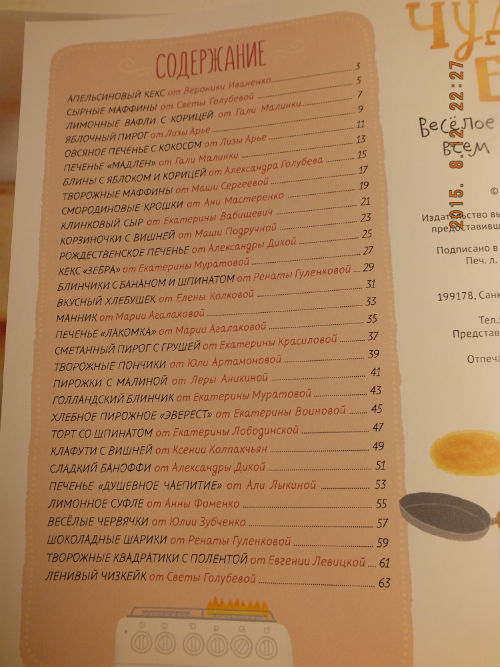 СОДЕРЖАНИЕ
АПЕЛЬСИНОВЫЙ КЕКС от Вероники Иваненко 3
СЫРНЫЕ МАФФИНЫ от Светы Голубевой 5
ЛИМОННЫЕ ВАФЛИ С КОРИЦЕЙ от Гали Малинки 7
ЯБЛОЧНЫЙ ПИРОГ от Лизы Арье 9
ОВСЯНОЕ ПЕЧЕНЬЕ С КОКОСОМ от Лизы Арье 11
ПЕЧЕНЬЕ «МАДЛЕН» от Гали Малинки 13
БЛИНЫ С ЯБЛОКОМ И КОРИЦЕЙ от Александра Голубева 15
ТВОРОЖНЫЕ МАФФИНЫ от Маши Сергеевой 17
СМОРОДИНОВЫЕ КРОШКИ от Ани Мастеренко 19
КЛИНКОВЫЙ СЫР от Екатерины Вабищевич 21
КОРЗИНОЧКИ С ВИШНЕЙ от Маши Подручной 23
РОЖДЕСТВЕНСКОЕ ПЕЧЕНЬЕ от Александры Дикой 25
КЕКС «ЗЕБРА» от Екатерины Муратовой 27
БЛИНЧИКИ С БАНАНОМ И ШПИНАТОМ от Ренаты Гуленковой 29
ВКУСНЫЙ ХЛЕБУШЕК от Елены Холковой 31
МАННИК от Марии Агалаковой 33
ПЕЧЕНЬЕ «ЛАКОМКА» от Марии Агалаковой 35
СМЕТАННЫЙ ПИРОГ С ГРУШЕЙ от Екатерины Красиловой 37
ТВОРОЖНЫЕ ПОНЧИКИ от Юли Артамоновой 39
ПИРОЖКИ С МАЛИНОЙ от Леры Аникиной 41
ГОЛЛАНДСКИЙ БЛИНЧИК от Екатерины Муратовой 43
ХЛЕБНОЕ ПИРОЖНОЕ «ЭВЕРЕСТ» от Екатерины Воиновой 45
ТОРТ СО ШПИНАТОМ от Екатерины Лободинской 47
КЛАФУТИ С ВИШНЕЙ от Ксении Колпахчьян 49
СЛАДКИЙ БАНОФФИ от Александры Дикой 51
ПЕЧЕНЬЕ «ДУШЕВНОЕ ЧАЕПИТИЕ» от Али Лыкиной 53
ЛИМОННОЕ СУФЛЕ от Анны Фоменко 55
ВЕСЁЛЫЕ ЧЕРВЯЧКИ от Юлии Зубченко 57
ШОКОЛАДНЫЕ ШАРИКИ от Ренаты Гуленковой 59
ТВОРОЖНЫЕ КВАДРАТИКИ С ПОЛЕНТОЙ от Евгении Левицкой 61
ЛЕНИВЫЙ ЧИЗКЕЙК от Светы Голубевой 63
ЧУД
Весёлое
всем
©
Издательство вы
предоставивш
Подписано в
Печ. л.
199178, Санк
Тел.
Представ
Отпеча
2015. 8.12 22:27